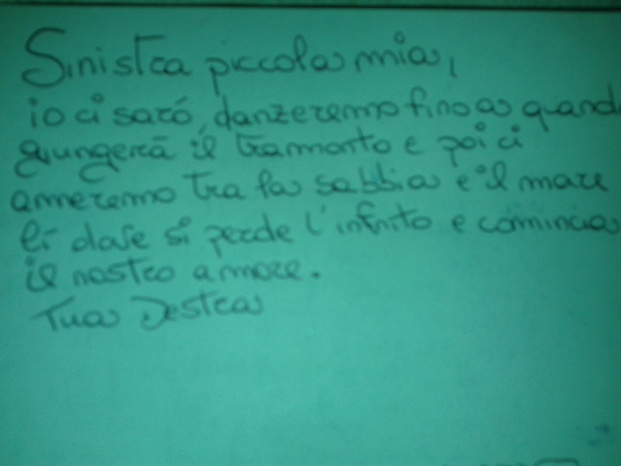 Sinistra piccola mia,
io ci saró, danzeremo fino a quando
giungerá il tramonto e poi ci
ameremo tra la sabbia e il mare
lí dove si perde l'infinito e comincia
il nostro amore.
Tua Destra